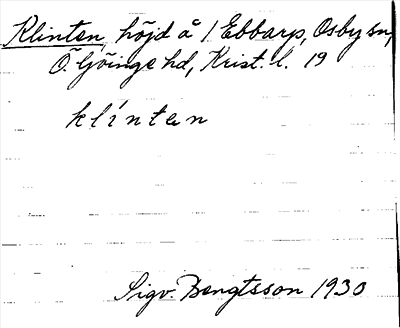 Klinten, höjd å 1 Ebbarp, Osby sn,
Ö. Göinge hd, Krist. l. 19
klintan
Sigv. Bengtsson 1930